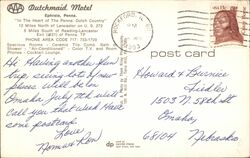 AAA Dutchmaid Motel
Ephrata, Penna.
"In The Heart of The Penna. Dutch Country"
12 Miles North of Lancaster on U.S. 222
5 Miles South of Reading-Lancaster
Exit of Penna. TP
PHONE AREA CODE 717: 733-1720
Spacious Rooms - Ceramic Tile Comb. Bath &
Shower - "Air-Conditioned" - Color T.V. and Room
post card
Hi. Having another fun
trip, seeing lots of new
places. Will be in
Omaha July 7th
call you that week. Have
some postcards
Love
Norma & Ron
Howard & Bernice
Fiedler
1503 N. 58th St
Omaha,
68104 Nebraska